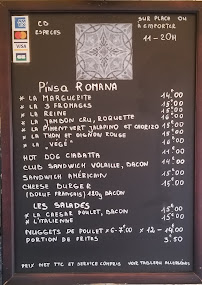 CB
ESPÈCES
SUR PLACE OU
A EMPORTER
11-20H
Pinsa Romana
* LA MARGUERITE 14€00
* LA 3 FROMAGES 15€00
* LA REINE 15€00
* LA JAMBON CRU, ROQUETTE 16€00
* LA PIMENT VERT JALAPINO ET CHORIZO 15€00
* LA THON ET OIGNON ROUGE 15€00
* LA "VEGÉ"
HOT DOG CIABATTA
CLUB SANDWICH VOLAILLE, BACON
SANDWICH AMÉRICAIN
CHEESE BURGER 15€00
(BOEUF FRANÇAIS) 180g BACON
LES SALADES
* LA CAESAR POULET, BACON 15€00
* L'ITALIENNE 15€00
NUGGETS DE POULET x6-7€00 x12-14€00
PORTION DE FRITES 3€50
PRIX NET TTC ET SERVICE COMPRIS VOIR TABLEAU ALLERGÈNES